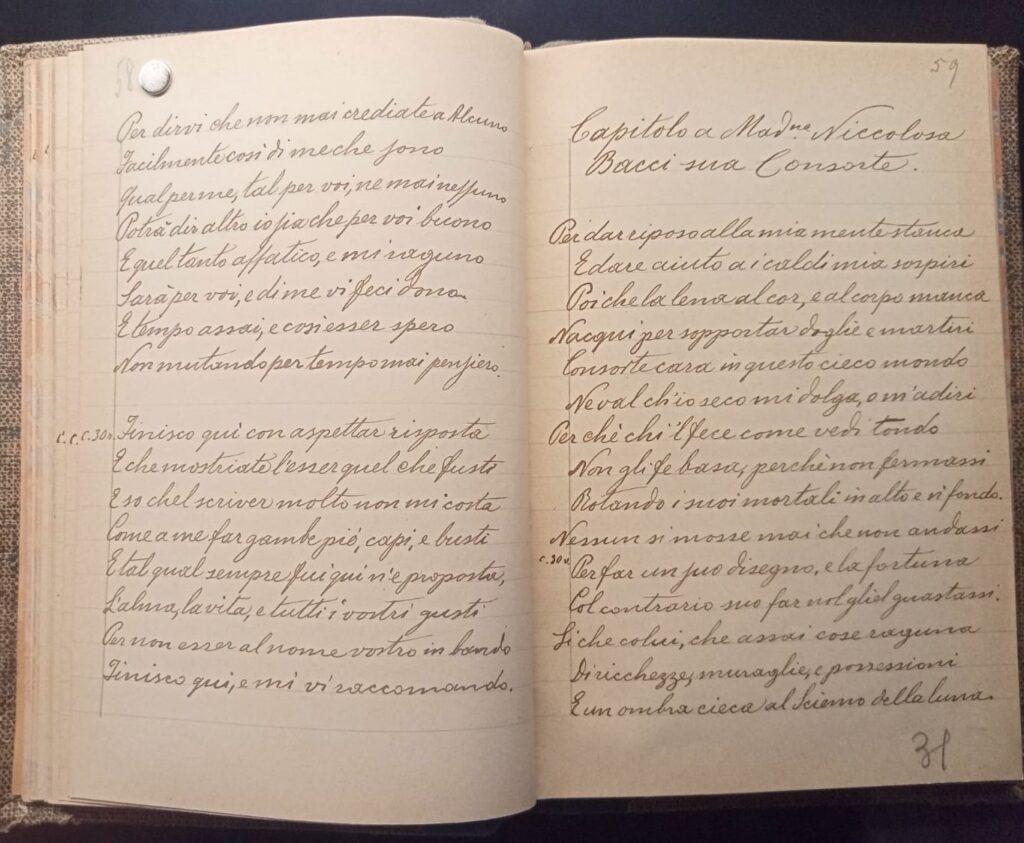 58
Per dirvi che non mai crediate a Alcuno
Facilmente così di me che sono
Qual per me, tal per voi, ne mai nessuno
Potrà dir altro io sia che per voi buono
E quel tanto affatico, e mi raguno
Sarà per voi, e di me vi feci dono
E tempo assai, e così esser spero
Non mutando per tempo mai pensiero.
c. 30r. Finisco qui con aspettar risposta
E che mostriate l'esser quel che fusti
E so chel scriver molto non mi costa
Come a me far gambe pié, capi, e busti
E tal qual sempre fui qui n'e proposta,
L'alma, la vita, e tutti i vostri gusti
Per non esser al nome vostro in bando
Finisco qui, e mi vi raccomando.
59
Capitolo a Mad.na Niccolosa
Bacci sua Consorte.
Per dar riposo alla mia mente stanca
E dare aiuto a i caldi mia sospiri
Poiche la lena al cor, e al corpo manca
Nacqui per sopportar doglie e martiri
Consorte cara in questo cieco mondo
Ne val ch'io seco mi dolga, o m'adiri
Perchè chi 'l fece come vedi tondo
Non gli fe basa, perchè non fermassi
Rotando i suoi mortali in alto e 'n fondo.
Nessun si mosse mai che non andassi
c. 30v. Per far un suo disegno, e la fortuna
Col contrario suo far nol gliel guastassi.
Si che colui, che assai cose raguna
Di ricchezze, muraglie, e possessioni
E un ombra cieca al Sciemo della luna.
31